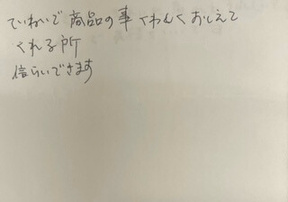 ていねいで商品の事くわしくおしえて
くれる所
信らいできます